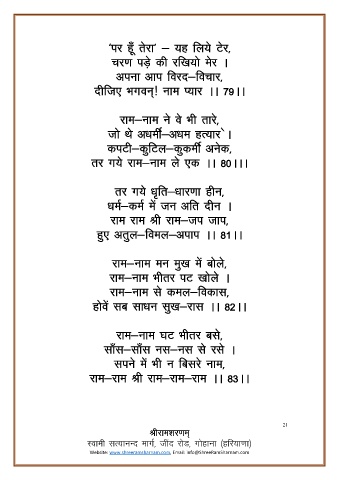 'पर हूँ तेरा' – यह लिये टेर,
चरण पड़े की रखियो मेर ।
अपना आप विरद–विचार,
दीजिए भगवन्! नाम प्यार ।। 79।।
राम–नाम ने वे भी तारे,
जो थे अधर्मी–अधम हत्यारे ।
कपटी–कुटिल–कुकर्मी अनेक,
तर गये राम–नाम ले एक ।। 80।।।
तर गये धृति–धारणा हीन,
धर्म–कर्म में जन अति दीन ।
राम राम श्री राम–जप जाप,
हुए अतुल–विमल–अपाप ।। 81।।
राम–नाम मन मुख में बोले,
राम–नाम भीतर पट खोले ।
राम–नाम से कमल–विकास,
होवें सब साधन सुख–रास ।। 82।।
राम–नाम घट भीतर बसे,
साँस–साँस नस–नस से रसे ।
सपने में भी न बिसरे नाम,
राम–राम श्री राम–राम–राम ।। 83।।
21
श्रीरामशरणम्
स्वामी सत्यानन्द मार्ग, जींद रोड, गोहाना (हरियाणा)
Website: www.shreeramsharnam.com, Email: info@ShreeRamSharnam.com